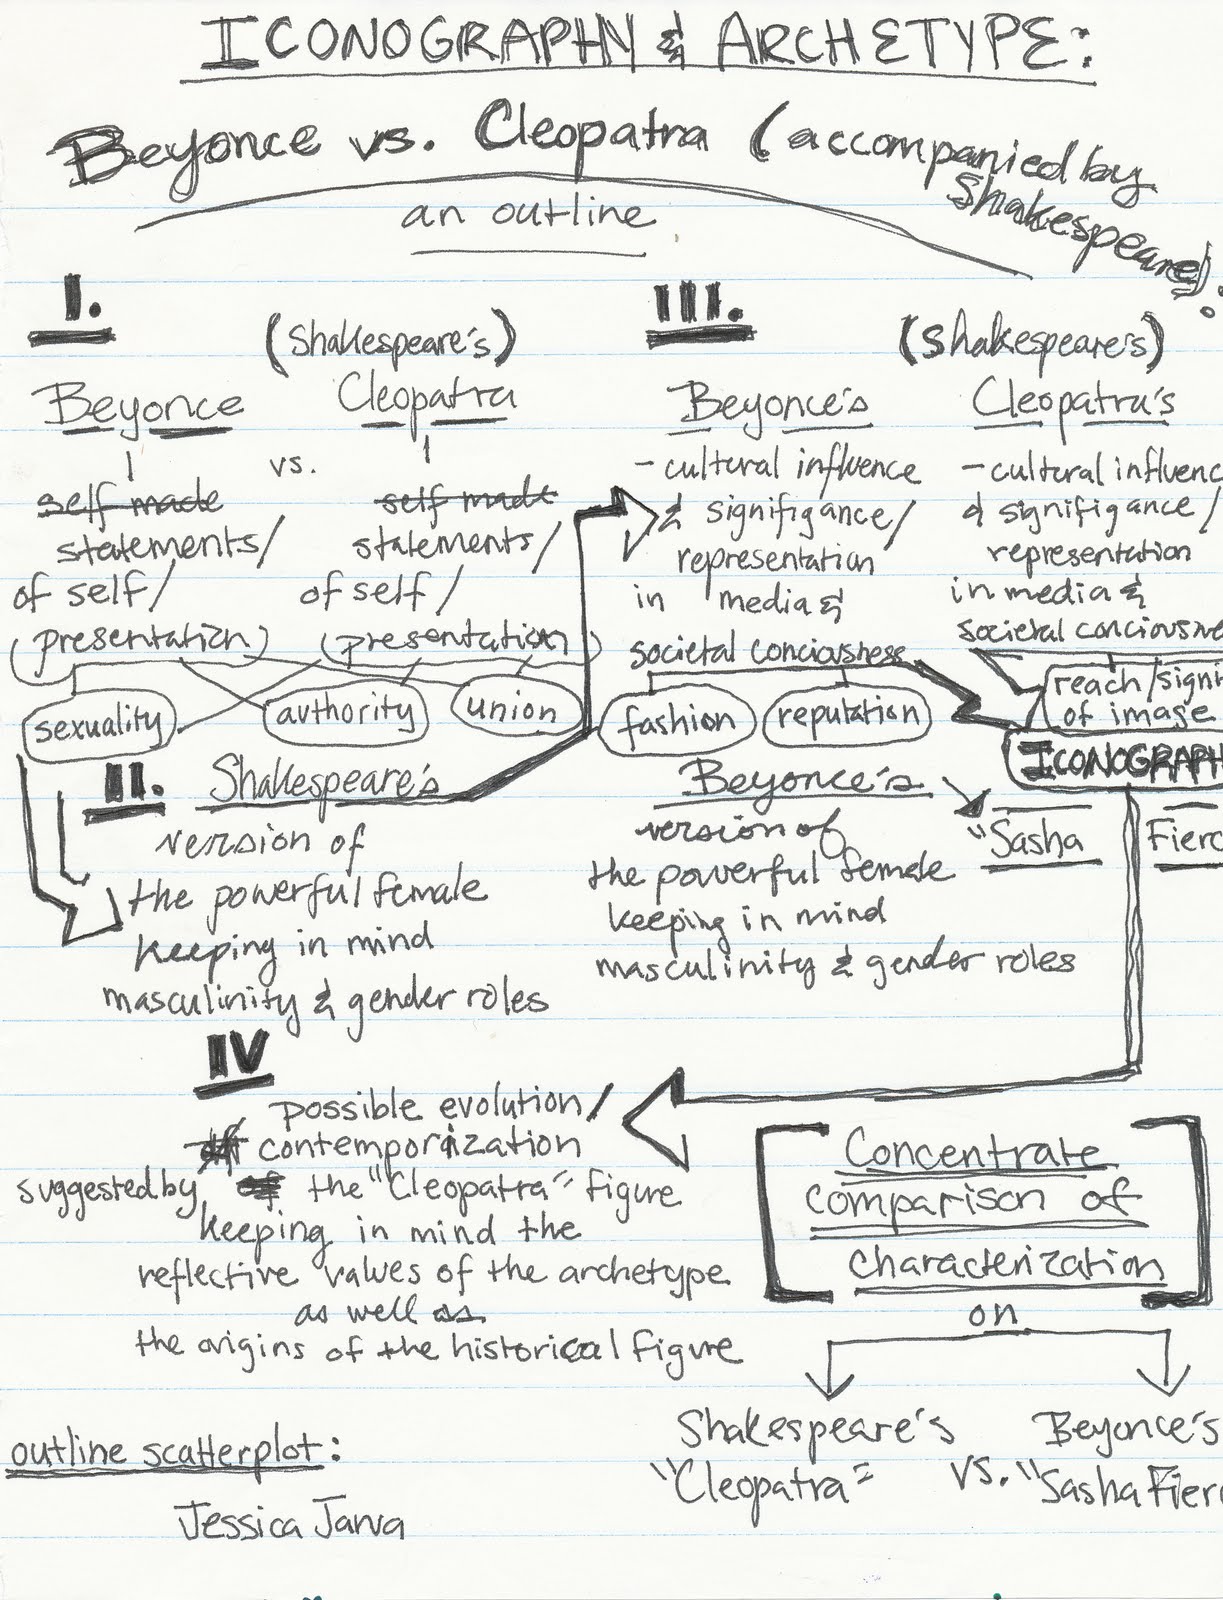 ICONOGRAPHY & ARCHETYPE:
Beyonce vs. Cleopatra (accompanied by
Shakespeare).
an outline
I.
(Shakespeare's)
Beyonce
Cleopatra
vs.
self made
statements/
of self/
(presentation)
self made
statements/
of self/
(presentation)
sexuality
authority
union
II.
Shakespeare's
version of
the powerful female
keeping in mind
masculinity & gender roles
Beyonce's
version of
the powerful female
keeping in mind
masculinity & gender roles
"Sasha Fierc
III.
(Shakespeare's)
Beyonce's
- cultural influence
& signifigance/
representation
in media &
societal conciousness
Cleopatra's
- cultural influenc
& signifigance/
representation
in media &
societal conciousne
fashion
reputation
reach/signi
of image
ICONOGRAPH
IV
possible evolution/
contemporization
suggested by the "Cleopatra" figure
keeping in mind the
reflective values of the archetype
as well as
the origins of the historical figure
[Concentrate
comparison of
characterization]
on
Shakespeare's
"Cleopatra"
vs.
Beyonce's
"Sasha Fierc
outline scatterplot:
Jessica Jarva